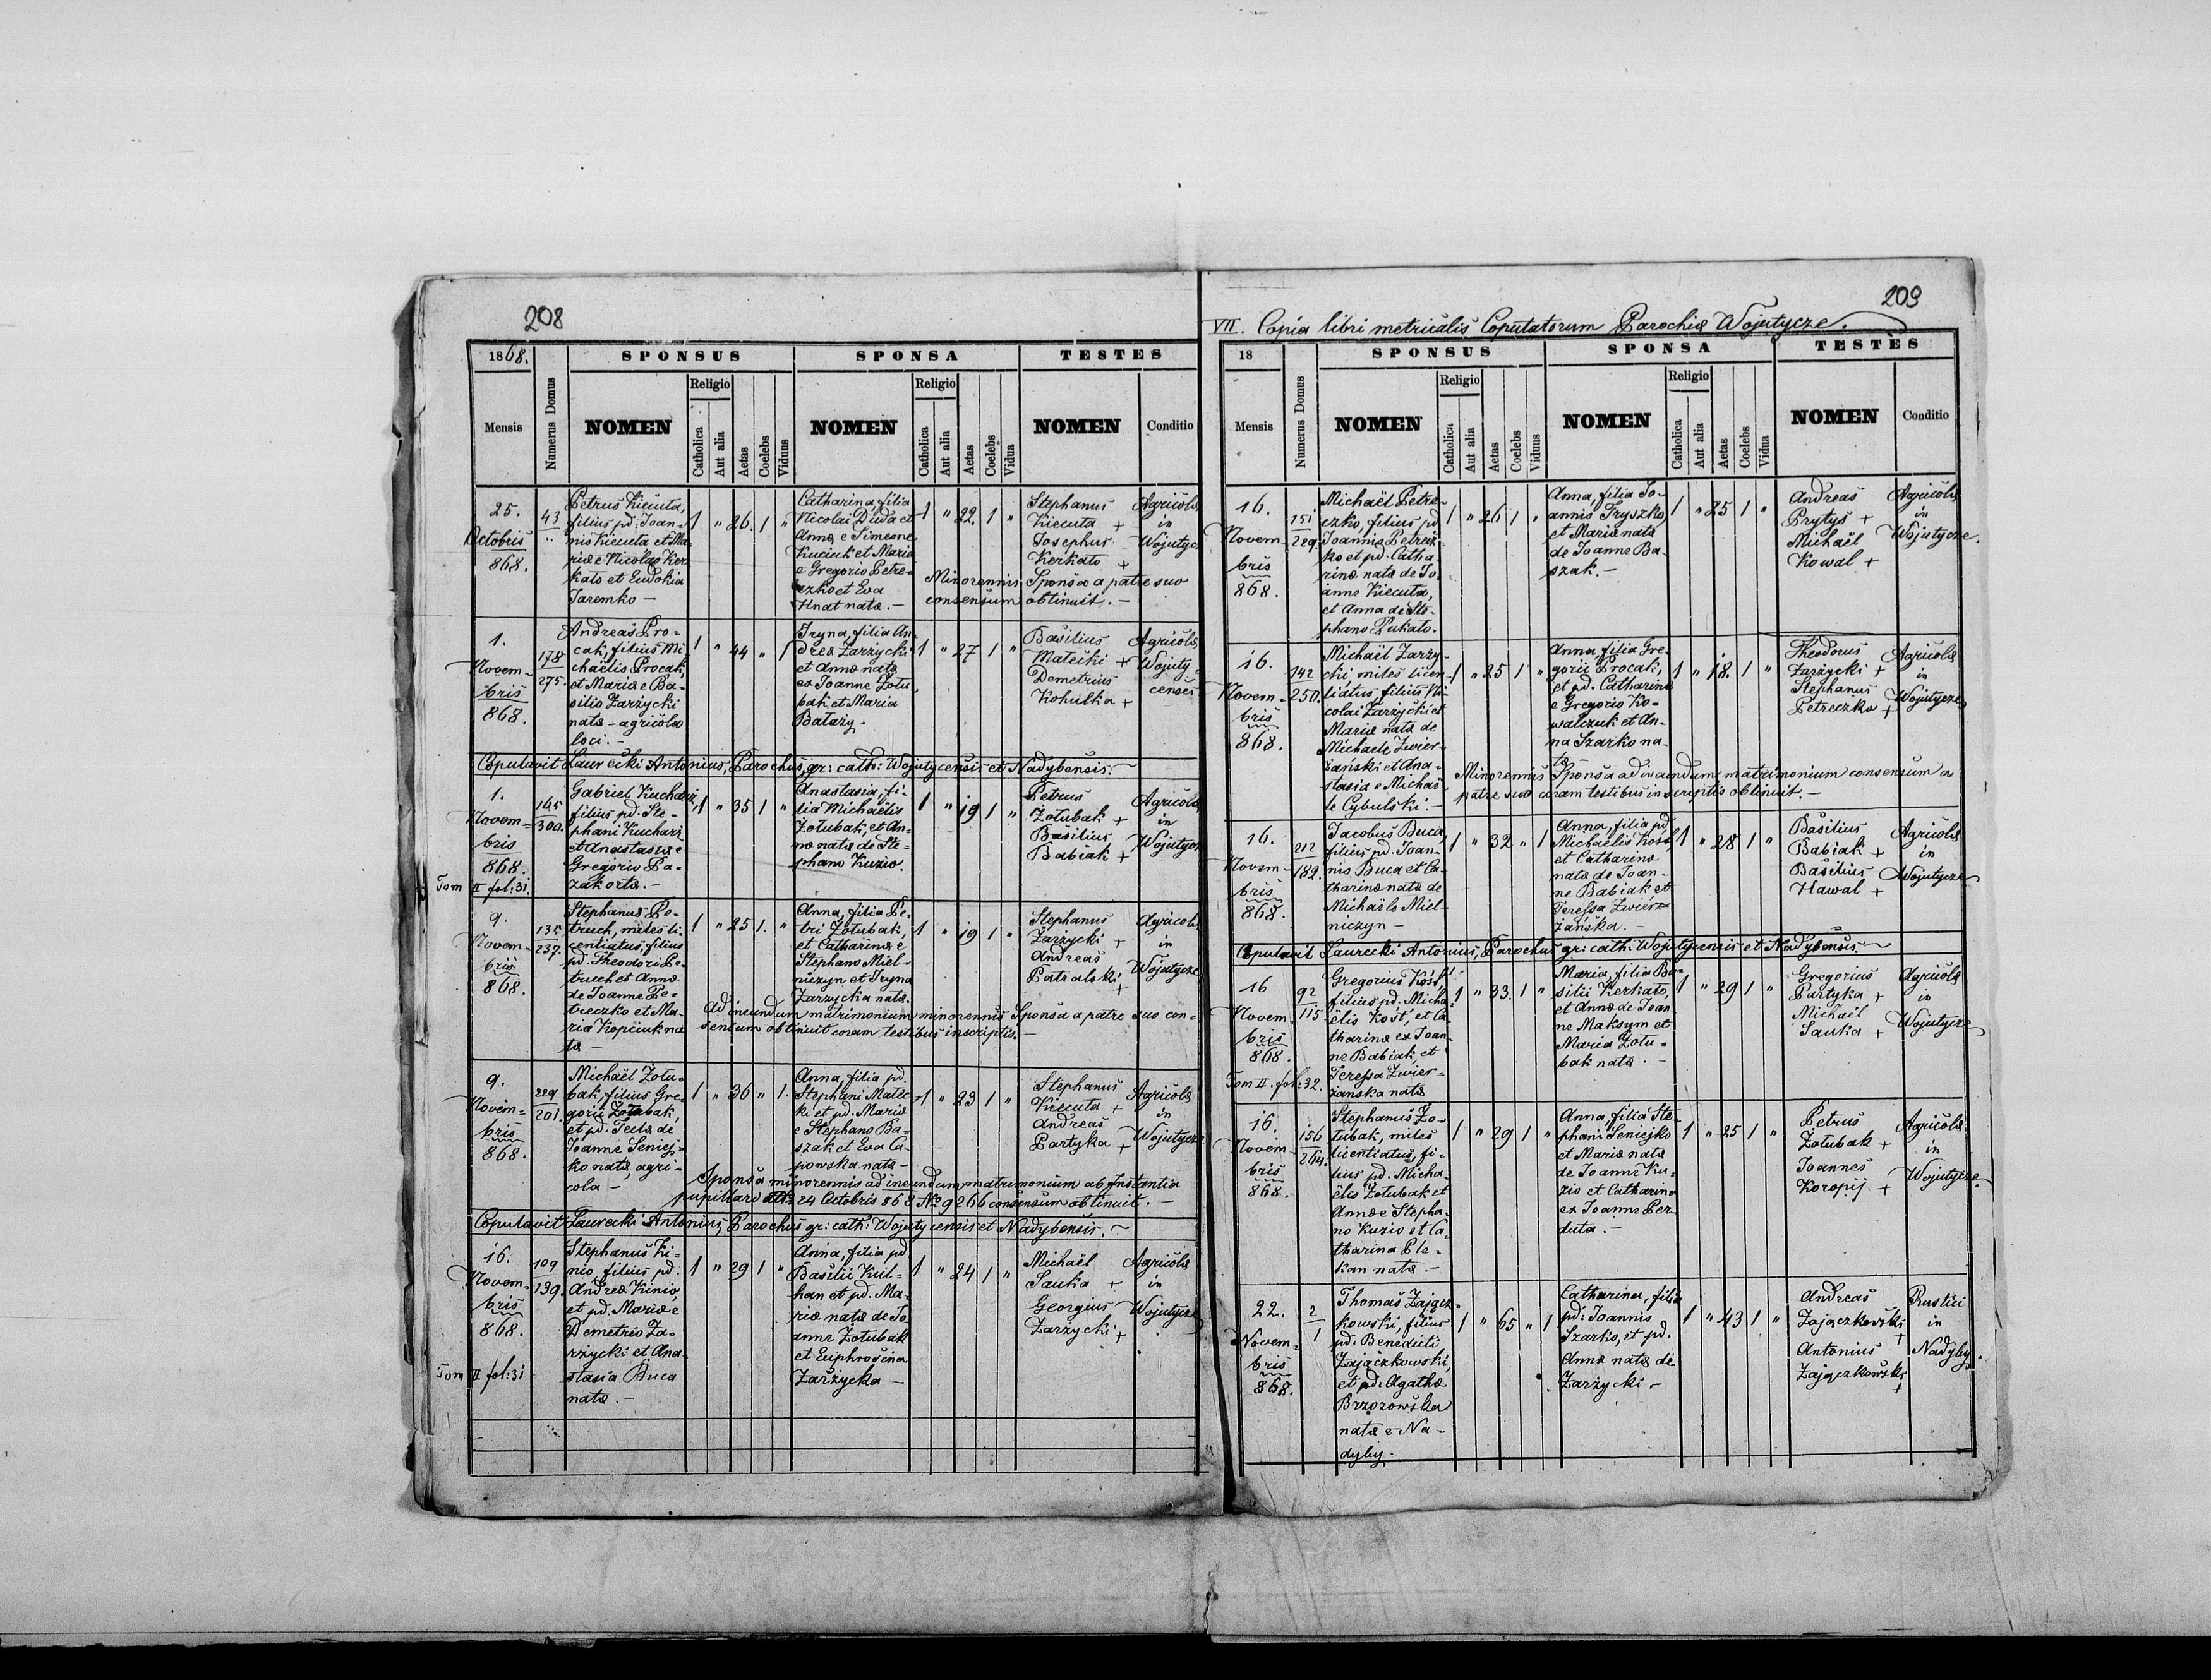 208
1868.
SPONSUS
SPONSA
TESTES
Mensis
Numerus Domus
NOMEN
Religio
Catholica
Aut alia
Aetas
Coelebs
Viduus
NOMEN
Religio
Catholica
Aut alia
Aetas
Coelebs
Vidua
NOMEN
Conditio
25.
Octobris
868.
43
Petrus Kiecuta,
filius pd: Joan-
nis Kiecuta et Ma-
riæ e Nicolao Ker-
kato et Eudokia
Jaremko —
1 " 26. 1 "
Catharina, filia
Nicolai Duda et
Annæ e Simeone
Kuciuk et Maria
e Gregorio Petre-
czko et Eva
Hnat nata. —
1 " 22. 1 "
Stephanus
Kiecuta +
Josephus
Kerkato +
Agricolæ
in
Wojutycz
Minorennis Sponsa a patre suo
consensum obtinuit. —
1.
Novem-
bris
868.
178
275.
Andreas Pro-
cak, filius Mi-
chaëlis Procak,
et Mariæ e Ba-
silio Zarzycki
natæ - agricola
loci. —
1 " 44 " 1
Iryna, filia An-
dreæ Zarzycki
et Annæ natæ
ex Joanne Zołu-
bak et Maria
Bałazy.
1 " 27 1 "
Basilius
Małecki +
Demetrius
Kohutka +
Agricolæ
Wojuty-
censes
Copulavit Laurecki Antonius, Parochus gr: cath: Wojutycensis et Nadybensis. —
1.
Novem-
bris
868.
Tom II fol: 31.
165
300.
Gabriel Kucharz,
filius pd. Ste-
phani Kucharz
et Anastasiæ e
Gregorio Pa-
zak ortæ. —
1 " 35 1 "
Anastasia, fi-
lia Michaëlis
Zołubak, et An-
næ natæ de Ste-
phano Kuzio.
1 " 19 1 "
Petrus
Zołubak +
Basilius
Babiak +
Agricolæ
in
Wojutycz
9.
Novem-
bris
868.
135
237.
Stephanus Pe-
truch, miles li-
centiatus, filius
pd. Theodori Pe-
truch et Annæ
de Joanne Pe-
treczko et Ma-
ria Kopciuk na-
tæ —
1 " 25 1. "
Anna, filia Pe-
tri Zołubak,
et Catharinæ e
Stephano Miel-
niczyn et Iryna
Zarzycka natæ.
1 " 19 1 "
Stephanus
Zarzycki +
Andreas
Patralski +
Agricolæ
in
Wojutycze
Ad ineundum matrimonium minorennis Sponsa a patre suo con-
sensum obtinuit coram testibus inscriptis. —
9.
Novem-
bris
868.
229
201.
Michaël Zołu-
bak, filius Gre-
gorii Zołubak
et pd. Teclæ de
Joanne Seniej-
ko natæ, agri-
cola —
1 " 36 " 1.
Anna, filia pd.
Stephani Małec-
ki et pd. Mariæ
e Stephano Ba-
szak et Eva Ca-
powska natæ —
1 " 23 1 "
Stephanus
Kiecuta +
Andreas
Partyka +
Agricolæ
in
Wojutycze
Sponsa minorennis ad ineundum matrimonium ab Instantia
pupillari dtto 24 Octobris 868 No 9266 consensum obtinuit. —
Copulavit Laurecki Antonius, Parochus gr: cath: Wojutycensis et Nadybensis. —
16.
Novem-
bris
868.
Tom II fol: 31
109
139.
Stephanus Ki-
nio, filius pd.
Andreæ Kinio,
et pd. Mariæ e
Demetrio Za-
rzycki et Ana-
stasia Buca
natæ. —
1 " 29 1 "
Anna, filia pd
Basilii Kul-
han et pd. Ma-
riæ natæ de Jo-
anne Zołubak
et Euphrosina
Zarzycka —
1 " 24 1 "
Michaël
Sauka +
Georgius
Zarzycki +
Agricolæ
in
Wojutycze
209
VII. Copia libri metricalis Copulatorum Parochiæ Wojutycze.
18
SPONSUS
SPONSA
TESTES
Mensis
Numerus Domus
NOMEN
Religio
Catholica
Aut alia
Aetas
Coelebs
Viduus
NOMEN
Religio
Catholica
Aut alia
Aetas
Coelebs
Vidua
NOMEN
Conditio
16.
Novem-
bris
868.
151
229.
Michaël Petre-
czko, filius pd
Joannis Petrecz-
ko et pd. Catha-
rinæ natæ de Jo-
anne Kiecuta,
et Anna de Ste-
phano Pukato.
1 " 26 1 "
Anna, filia Jo-
annis Tryszko,
et Mariæ natæ
de Joanne Ba-
szak. —
1 " 25 1 "
Andreas
Prytys +
Michaël
Kowal +
Agricolæ
in
Wojutycze.
16.
Novem-
bris
868.
142
250.
Michaël Zarzy-
cki miles licen-
tiatus, filius Ni-
colai Zarzycki et
Mariæ natæ de
Michaele Zwier-
żański et Ana-
stasia e Michaë-
le Cybulski. —
1 " 25 1 "
Anna, filia Gre-
gorii Procak,
et pd. Catharinæ
e Gregorio Ko-
walczuk et An-
na Szarko na-
tæ —
1 " 18. 1 "
Theodorus
Zarzycki +
Stephanus
Petreczko +
Agricolæ
in
Wojutycze
Minorennis Sponsa ad ineundum matrimonium consensum a
patre suo coram testibus in scriptis obtinuit. —
16.
Novem-
bris
868.
212
182.
Jacobus Buca,
filius pd. Joan-
nis Buca et Ca-
tharinæ natæ de
Michaële Miel-
niczyn —
1 " 32 " 1
Anna, filia pd
Michaëlis Kość
et Catharinæ
natæ de Joan-
ne Babiak et
Teressa Zwierz-
żańska. —
1 " 28 1 "
Basilius
Babiak +
Basilius
Hawal +
Agricolæ
in
Wojutycze
Copulavit Laurecki Antonius, Parochus gr: cath: Wojutycensis et Nadybensis. —
16
Novem-
bris
868.
Tom II. fol: 32.
92
115
Gregorius Kość,
filius pd. Micha-
ëlis Kość, et Ca-
tharinæ ex Joan-
ne Babiak, et
Teressa Zwier-
żanska natæ
1 " 33. 1 "
Maria, filia Ba-
silii Kerkato,
et Annæ de Joan-
ne Maksym et
Maria Zołu-
bak natæ. —
1 " 29 1 "
Gregorius
Partyka +
Michaël
Sauka +
Agricolæ
in
Wojutycze
16.
Novem-
bris
868.
156
264.
Stephanus Zo-
łubak, miles
licentiatus, fi-
lius pd. Micha-
ëlis Zołubak et
Annæ e Stepha-
no Kuzio et Ca-
tharina Ple-
kan natæ. —
1 " 29 1 "
Anna, filia Ste-
phani Seniejko
et Mariæ natæ
de Joanne Ku-
zio et Catharina
ex Joanne Per-
duta. —
1 " 25 1 "
Petrus
Zołubak +
Joannes
Koropij +
Agricolæ
in
Wojutycze
22.
Novem-
bris
868.
2
1
Thomas Zającz-
kowski, filius
pd: Benedicti
Zajączkowski,
et pd: Agathæ
Brzozowska
natæ e Na-
dyby.
1 " 65 " 1
Catharina, filia
pd: Joannis
Szarko, et pd.
Annæ natæ de
Zarzycki —
1 " 43 1 "
Andreas
Zajączkowski
+
Antonius
Zajączkowski
+
Rustici
in
Nadyby.